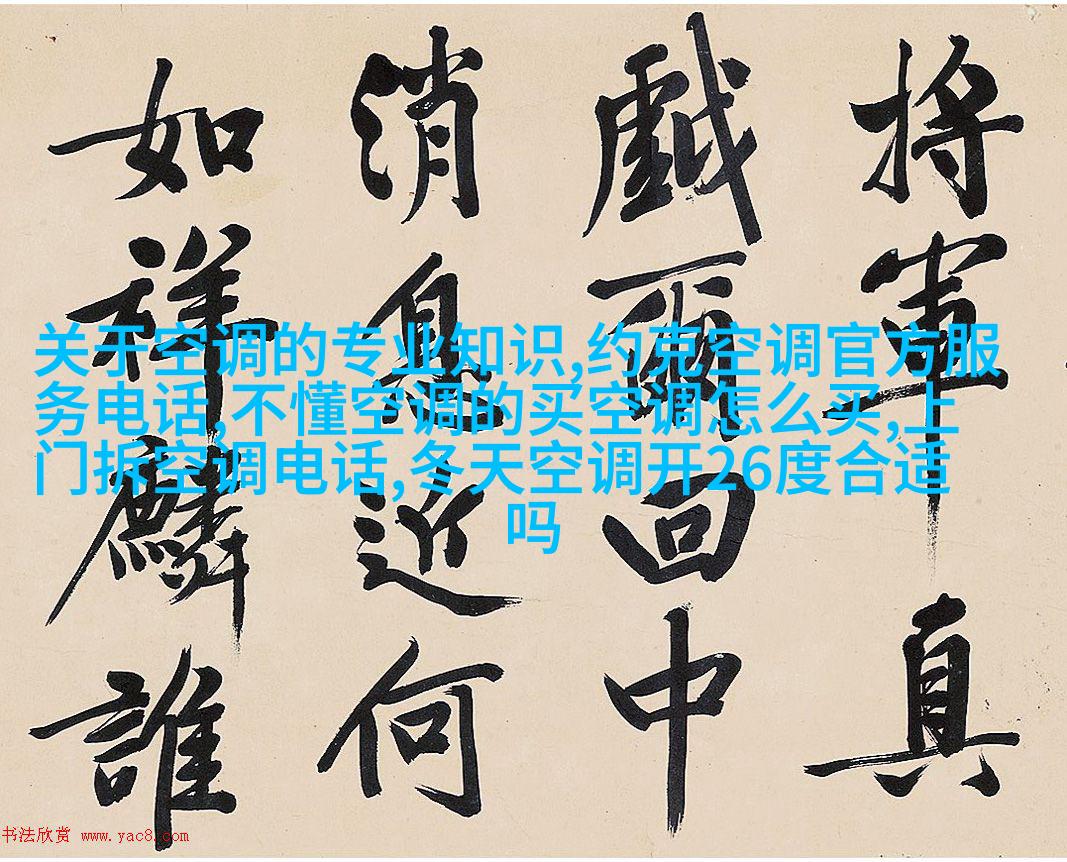 將軍真
戲回中
消息近何
如祥麟誰
关于空调的专业知识,约克空调官方服
务电话,不懂空调的买空调怎么买,上
门拆空调电话,冬天空调开26度合适
吗
书法欣赏 www.yac8.com